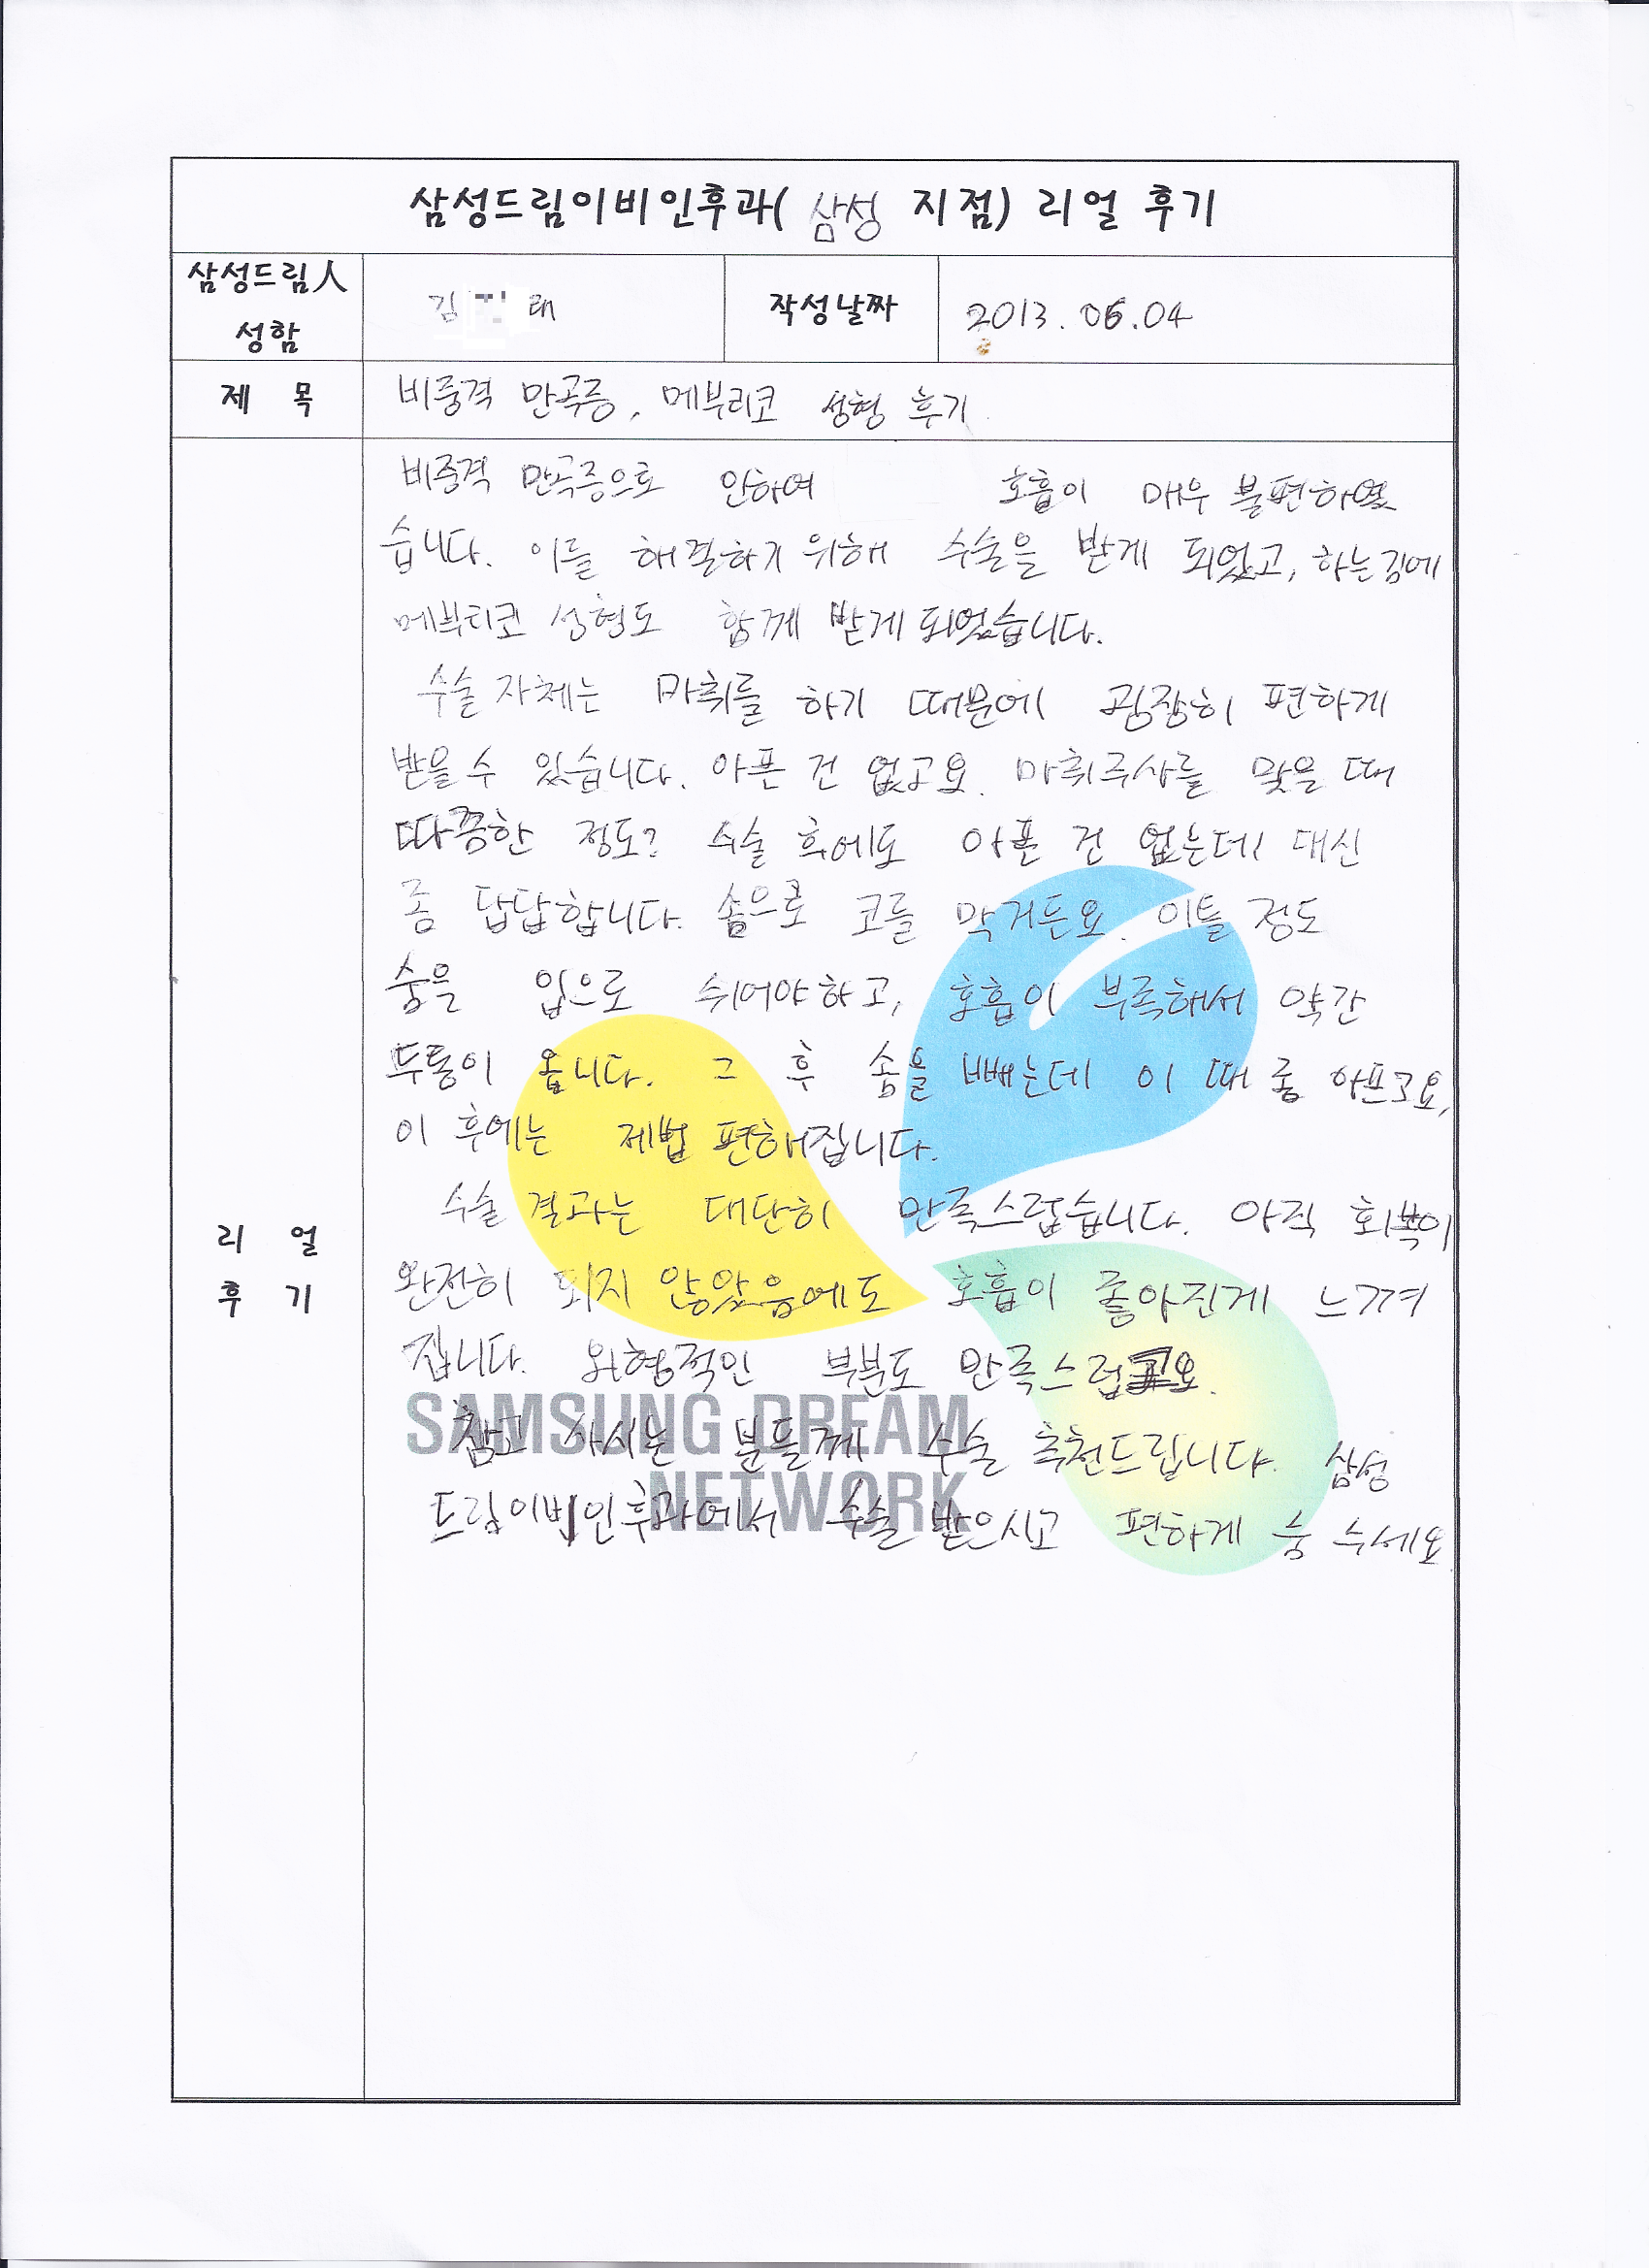 삼성드림이비인후과( 삼성 지점) 리얼 후기
삼성드림人
성함
김 래
작성날짜
2013. 06.04
제 목
비중격 만곡증, 메부리코 성형 후기
비중격 만곡증으로 인하여 호흡이 매우 불편하였
습니다. 이를 해결하기 위해 수술을 받게 되었고, 하는김에
메부리코 성형도 함께 받게 되었습니다.
수술 자체는 마취를 하기 때문에 굉장히 편하게
받을 수 있습니다. 아픈 건 없고요. 마취주사를 맞을 때
따끔한 정도? 수술 후에도 아픈 건 없는데 대신
좀 답답합니다. 솜으로 코를 막거든요. 이틀 정도
숨을 입으로 쉬어야하고, 호흡이 부족해서 약간
두통이 옵니다. 그 후 솜을 빼는데 이 때 좀 아프고요,
이 후에는 제법 편해집니다.
수술 결과는 대단히 만족스럽습니다. 아직 회복이
완전히 되지 않았음에도 호흡이 좋아진게 느껴
집니다. 외형적인 부분도 만족스럽고요.
참고 사시는 분들께 수술 추천드립니다. 삼성
드림이비인후과에서 수술 받으시고 편하게 숨 쉬세요
리 얼
후 기
SAMSUNG DREAM
NETWORK